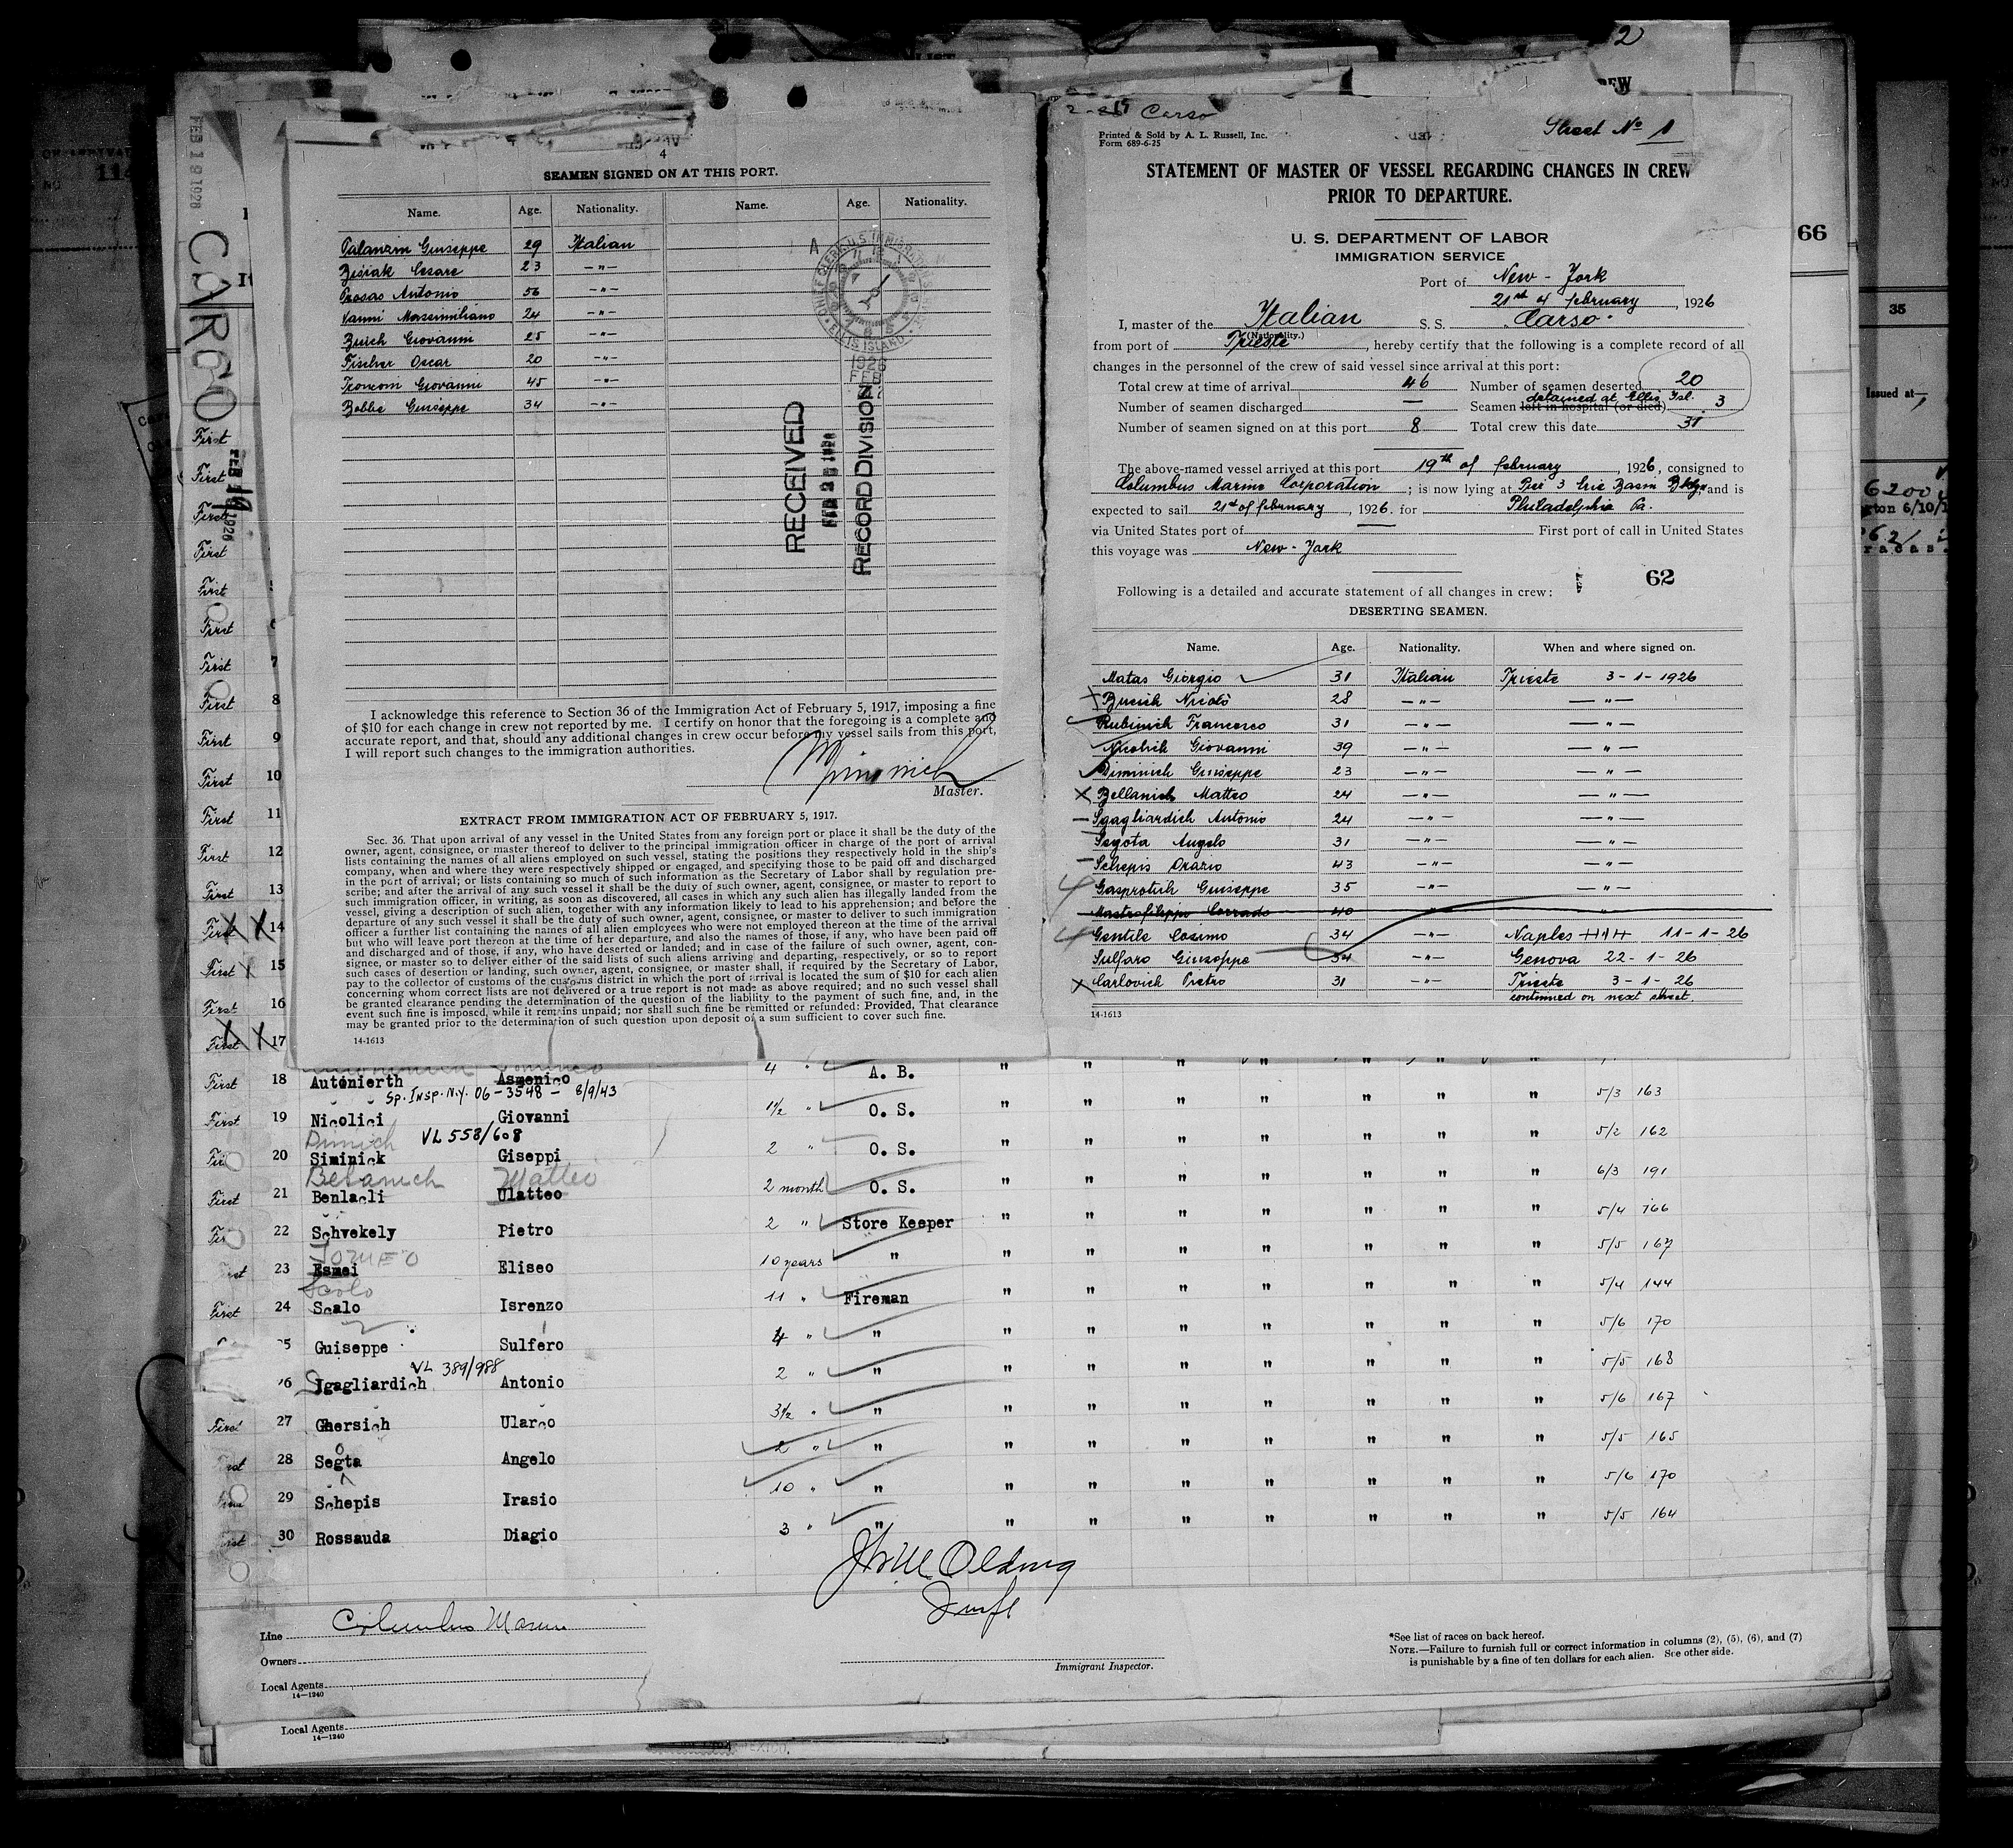 4
SEAMEN SIGNED ON AT THIS PORT.
Name. Age. Nationality. Name. Age. Nationality.
Palanzin Giuseppe 29 Italian
Bisiak Cesare 23 —"—
Prosas Antonio 56 —"—
Vanni Massimiliano 24 —"—
Zuich Giovanni 25 —"—
Fischer Oscar 20 —"—
Troncom Giovanni 45 —"—
Bobbie Giuseppe 34 —"—
RECEIVED
RECORD DIVISION
1926
FEB
ELLIS ISLAND
I acknowledge this reference to Section 36 of the Immigration Act of February 5, 1917, imposing a fine
of $10 for each change in crew not reported by me. I certify on honor that the foregoing is a complete and
accurate report, and that, should any additional changes in crew occur before my vessel sails from this port,
I will report such changes to the immigration authorities.
Master.
EXTRACT FROM IMMIGRATION ACT OF FEBRUARY 5, 1917.
Sec. 36. That upon arrival of any vessel in the United States from any foreign port or place it shall be the duty of the
owner, agent, consignee, or master thereof to deliver to the principal immigration officer in charge of the port of arrival
lists containing the names of all aliens employed on such vessel, stating the positions they respectively hold in the ship's
company, when and where they were respectively shipped or engaged, and specifying those to be paid off and discharged
in the port of arrival; or lists containing so much of such information as the Secretary of Labor shall by regulation pre-
scribe; and after the arrival of any such vessel it shall be the duty of such owner, agent, consignee, or master to report to
such immigration officer, in writing, as soon as discovered, all cases in which any such alien has illegally landed from the
vessel, giving a description of such alien, together with any information likely to lead to his apprehension; and before the
departure of any such vessel it shall be the duty of such owner, agent, consignee, or master to deliver to such immigration
officer a further list containing the names of all alien employees who were not employed thereon at the time of the arrival
but who will leave port thereon at the time of her departure, and also the names of those, if any, who have been paid off
and discharged and of those, if any, who have deserted or landed; and in case of the failure of such owner, agent, con-
signee, or master so to deliver either of the said lists of such aliens arriving and departing, respectively, or so to report
such cases of desertion or landing, such owner, agent, consignee, or master shall, if required by the Secretary of Labor,
pay to the collector of customs of the customs district in which the port of arrival is located the sum of $10 for each alien
concerning whom correct lists are not delivered or a true report is not made as above required; and no such vessel shall
be granted clearance pending the determination of the question of the liability to the payment of such fine, and, in the
event such fine is imposed, while it remains unpaid; nor shall such fine be remitted or refunded: Provided, That clearance
may be granted prior to the determination of such question upon deposit of a sum sufficient to cover such fine.
14-1613
Carso
Street No 1
Printed & Sold by A. L. Russell, Inc.
Form 689-6-25
STATEMENT OF MASTER OF VESSEL REGARDING CHANGES IN CREW
PRIOR TO DEPARTURE.
U. S. DEPARTMENT OF LABOR
IMMIGRATION SERVICE
Port of New-York
21st of february, 1926
I, master of the Italian S. S. Carso
(Nationality.)
from port of Trieste, hereby certify that the following is a complete record of all
changes in the personnel of the crew of said vessel since arrival at this port:
Total crew at time of arrival 46 Number of seamen deserted 20
detained at Ellis Isl.
Number of seamen discharged — Seamen left in hospital (or died) 3
Number of seamen signed on at this port 8 Total crew this date 31
The above-named vessel arrived at this port 19th of february, 1926, consigned to
Columbus Marine Corporation; is now lying at Pier 3 Erie Basin Bklyn and is
expected to sail 21st of february, 1926. for Philadelphia Pa.
via United States port of — First port of call in United States
this voyage was New-York
62
Following is a detailed and accurate statement of all changes in crew:
DESERTING SEAMEN.
Name. Age. Nationality. When and where signed on.
Matas Giorgio 31 Italian Trieste 3-1-1926
Bucich Nicolò 28 —"— —"—
Rubinich Francesco 31 —"— —"—
Nicolich Giovanni 39 —"— —"—
Diminich Giuseppe 23 —"— —"—
Bellanich Matteo 24 —"— —"—
Sgagliardich Antonio 24 —"— —"—
Segota Angelo 31 —"— —"—
Schepis Orazio 43 —"— —"—
Gasprotich Giuseppe 35 —"— —"—
Mastrofilippo Corrado 40 " "
Gentile Cosimo 34 —"— Naples 11-1-26
Sulfaro Giuseppe 34 —"— Genova 22-1-26
Carlovich Pietro 31 —"— Trieste 3-1-26
continued on next street
14-1613
CARGO
FEB 19 1926
66
35
Issued at
First 8
First 9
First 10
First 11
First 12
First 13
First 14
First 15
First 16
First 17
First 18 Autonierth Asmenico 4 " A. B.
Sp. Insp. N.Y. 06-3548 - 8/9/43
First 19 Nicolici Giovanni 1½ " O. S. 5/3 163
VL 558/608
20 Siminick Giseppi 2 " O. S. 5/2 162
Belanich Matteo
First 21 Benlacli Ulatteo 2 month O. S. 6/3 191
22 Schvekely Pietro 2 " Store Keeper 5/4 166
23 Esmei Eliseo 10 years " 5/5 167
Scolo
First 24 Scalo Isrenzo 11 " Fireman 5/4 144
5 Guiseppe Sulfero 4 " " 5/6 170
VL 389/988
26 Sgagliardich Antonio 2 " " 5/5 168
First 27 Ghersich Ularco 3½ " " 5/6 167
28 Segta Angelo 2 " " 5/5 165
29 Schepis Irasio 10 " " 5/6 170
30 Rossauda Diagio 3 " " 5/5 164
Line Columbus Marine
Owners
Local Agents
14—1240
Immigrant Inspector.
*See list of races on back hereof.
NOTE.—Failure to furnish full or correct information in columns (2), (5), (6), and (7)
is punishable by a fine of ten dollars for each alien. See other side.
Local Agents
14—1240